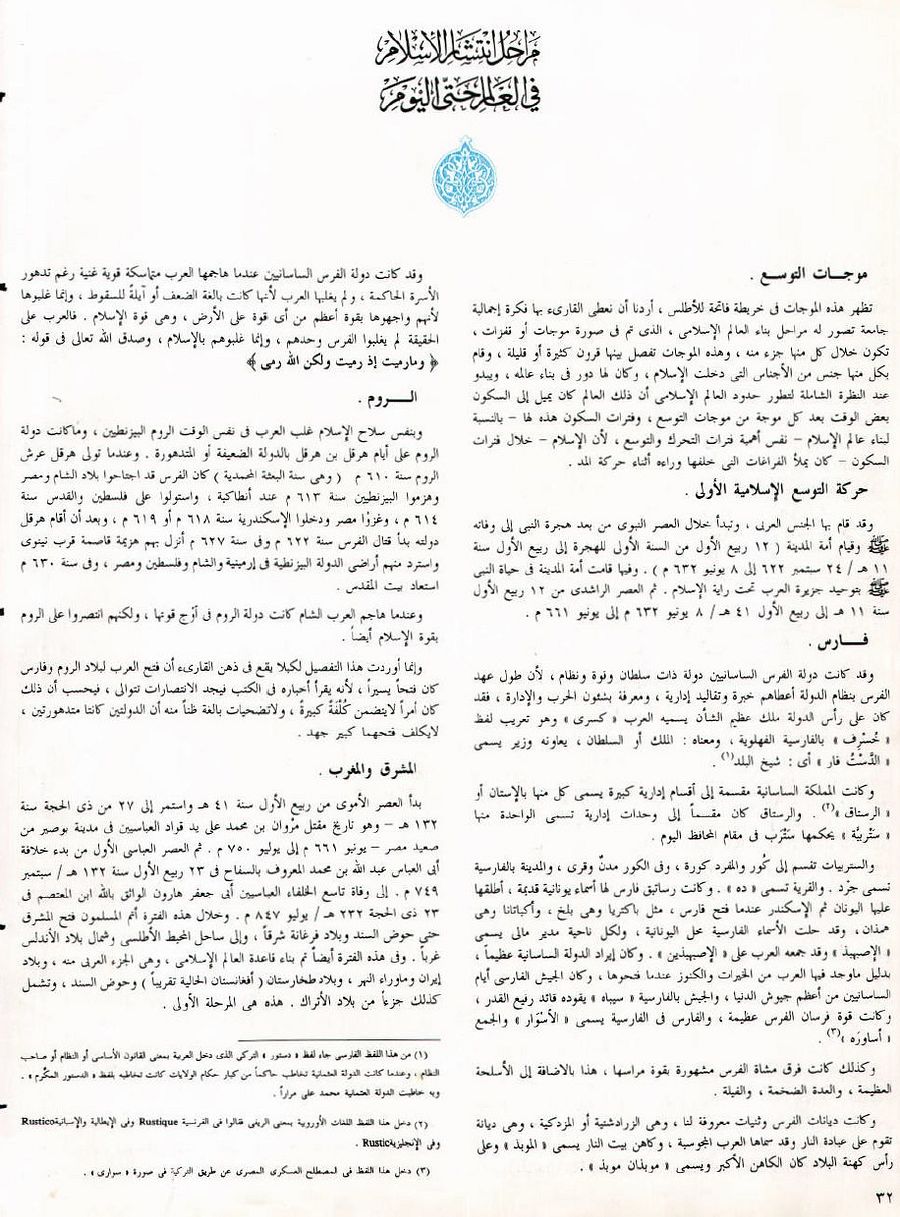 مراحل انتشار الإسلام
في العالم حتى اليوم
موجـات التوسـع .
تظهر هذه الموجات فى خريطة فاتحة للأطلس ، أردنا أن نعطى القارىء بها فكرة إجمالية
جامعة تصور له مراحل بناء العالم الإسلامى ، الذى تم فى صورة موجات أو قفزات ،
تكون خلال كل منها جزء منه ، وهذه الموجات تفصل بينها قرون كثيرة أو قليلة ، وقام
بكل منها جنس من الأجناس التى دخلت الإسلام ، وكان لها دور فى بناء عالمه ، ويبدو
عند النظرة الشاملة لتطور حدود العالم الإسلامى أن ذلك العالم كان يميل إلى السكون
بعض الوقت بعد كل موجة من موجات التوسع ، وفترات السكون هذه لها – بالنسبة
لبناء عالم الإسلام – نفس أهمية فترات التحرك والتوسع ، لأن الإسلام – خلال فترات
السكون – كان يملأ الفراغات التى خلفها وراءه أثناء حركة المد .
حركة التوسع الإسلامية الأولى .
وقد قام بها الجنس العربى ، وتبدأ خلال العصر النبوى من بعد هجرة النبى إلى وفاته
ﷺ وقيام أمة المدينة ( ١٢ ربيع الأول من السنة الأولى للهجرة إلى ربيع الأول سنة
١١ هـ / ٢٤ سبتمبر ٦٢٢ إلى ٨ يونيو ٦٣٢ م ) . وفيها قامت أمة المدينة فى حياة النبى
ﷺ بتوحيد جزيرة العرب تحت راية الإسلام . ثم العصر الراشدى من ١٢ ربيع الأول
سنة ١١ هـ إلى ربيع الأول ٤١ هـ/ ٨ يونيو ٦٣٢ م إلى يونيو ٦٦١ م .
فــارس .
وقد كانت دولة الفرس الساسانيين دولة ذات سلطان وقوة ونظام ، لأن طول عهد
الفرس بنظام الدولة أعطاهم خبرة وتقاليد إدارية ، ومعرفة بشئون الحرب والإدارة ، فقد
كان على رأس الدولة ملك عظيم الشأن يسميه العرب « كسرى » وهو تعريب لفظ
« خُسْرِف » بالفارسية الفهلوية ، ومعناه : الملك أو السلطان ، يعاونه وزير يسمى
« الدَّسْتُ فار » أى : شيخ البلد(١) .
وكانت المملكة الساسانية مقسمة إلى أقسام إدارية كبيرة يسمى كل منها بالإستان أو
« الرستاق »(٢) . والرستاق كان مقسماً إلى وحدات إدارية تسمى الواحدة منها
« ستْربيَّة » يحكمها ستْرَب فى مقام المحافظ اليوم .
والستربيات تقسم إلى كُور والمفرد كورة ، وفى الكور مدنٌ وقرى ، والمدينة بالفارسية
تسمى جَرْد . والقرية تسمى « ده » . وكانت رساتيق فارس لها أسماء يونانية قديمة ، أطلقها
عليها اليونان ثم الإسكندر عندما فتح فارس ، مثل باكتريا وهى بلخ ، وأكباتانا وهى
همذان، وقد حلت الأسماء الفارسية محل اليونانية ، ولكل ناحية مدير مالى يسمى
« الإصبهبذ » وقد جمعه العرب على « الإصبهبذين » . وكان إيراد الدولة الساسانية عظيماً ،
بدليل ماوجد فيها العرب من الخيرات والكنوز عندما فتحوها ، وكان الجيش الفارسى أيام
الساسانيين من أعظم جيوش الدنيا ، والجيش بالفارسية « سيباه » يقوده قائد رفيع القدر ،
وكانت قوة فرسان الفرس عظيمة ، والفارس فى الفارسية يسمى « الأسْوَار » والجمع
« أساورَه »(٣) .
وكذلك كانت فرق مشاة الفرس مشهورة بقوة مراسها ، هذا بالاضافة إلى الأسلحة
العظيمة ، والعدة الضخمة ، والفيلة .
وكانت ديانات الفرس وثنيات معروفة لنا ، وهى الزرادشتية أو المزدكية ، وهى ديانة
تقوم على عبادة النار وقد سماها العرب المجوسية ، وكاهن بيت النار يسمى « الموبذ » وعلى
رأس كهنة البلاد كان الكاهن الأكبر ويسمى « موبذان موبذ » .
وقد كانت دولة الفرس الساسانيين عندما هاجمها العرب متماسكة قوية غنية رغم تدهور
الأسرة الحاكمة ، ولم يغلبها العرب لأنها كانت بالغة الضعف أو آيلةً للسقوط ، وإنما غلبوها
لأنهم واجهوها بقوة أعظم من أى قوة على الأرض ، وهى قوة الإسلام . فالعرب على
الحقيقة لم يغلبوا الفرس وحدهم ، وإنما غلبوهم بالإسلام ، وصدق الله تعالى فى قوله :
﴿ ومارميت إذ رميت ولكن الله رمى ﴾
الـــروم .
وبنفس سلاح الإسلام غلب العرب فى نفس الوقت الروم البيزنطيين ، وماكانت دولة
الروم على أيام هرقل بن هرقل بالدولة الضعيفة أو المتدهورة . وعندما تولى هرقل عرش
الروم سنة ٦١٠ م ( وهى سنة البعثة المحمدية ) كان الفرس قد اجتاحوا بلاد الشام ومصر
وهزموا البيزنطيين سنة ٦١٣ م عند أنطاكية ، واستولوا على فلسطين والقدس سنة
٦١٤ م ، وغزوْا مصر ودخلوا الإسكندرية سنة ٦١٨ م أو ٦١٩ م ، وبعد أن أقام هرقل
دولته بدأ قتال الفرس سنة ٦٢٢ م وفى سنة ٦٢٧ م أنزل بهم هزيمة قاصمة قرب نينوى
واسترد منهم أراضى الدولة البيزنطية فى إرمينية والشام وفلسطين ومصر ، وفى سنة ٦٣٠ م
استعاد بيت المقدس .
وعندما هاجم العرب الشام كانت دولة الروم فى أوْج قوتها ، ولكنهم انتصروا على الروم
بقوة الإسلام أيضاً .
وإنما أوردت هذا التفصيل لكيلا يقع فى ذهن القارىء أن فتح العرب لبلاد الروم وفارس
كان فتحاً يسيراً ، لأنه يقرأ أخباره فى الكتب فيجد الانتصارات تتوالى ، فيحسب أن ذلك
كان أمراً لايتضمن كُلْفَةً كبيرةً ، ولاتضحيات بالغة ظناً منه أن الدولتين كانتا متدهورتين ،
لايكلف فتحهما كبير جهد .
المشرق والمغرب .
بدأ العصر الأموى من ربيع الأول سنة ٤١ هـ واستمر إلى ٢٧ من ذى الحجة سنة
١٣٢ هـ – وهو تاريخ مقتل مرْوان بن محمد على يد قواد العباسيين فى مدينة بوصير من
صعيد مصر – يونيو ٦٦١ م إلى يوليو ٧٥٠ م . ثم العصر العباسى الأول من بدء خلافة
أبى العباس عبد الله بن محمد المعروف بالسفاح فى ٢٣ ربيع الأول سنة ١٣٢ هـ / سبتمبر
٧٤٩ م . إلى وفاة تاسع الخلفاء العباسيين أبى جعفر هارون الواثق بالله ابن المعتصم فى
٢٣ ذى الحجة ٢٣٢ هـ / يوليو ٨٤٧ م . وخلال هذه الفترة أتم المسلمون فتح المشرق
حتى حوض السند وبلاد فرغانة شرقاً ، وإلى ساحل المحيط الأطلسى وشمال بلاد الأندلس
غرباً . وفى هذه الفترة أيضاً تم بناء قاعدة العالم الإسلامى ، وهى الجزء العربى منه ، وبلاد
إيران وماوراء النهر ، وبلاد طخارستان ( أفغانستان الحالية تقريباً ) وحوض السند ، وتشمل
كذلك جزءاً من بلاد الأتراك . هذه هى المرحلة الأولى .
(١) من هذا اللفظ الفارسى جاء لفظ « دستور » التركى الذى دخل العربية بمعنى القانون الأساسى أو النظام أو صاحب
النظام ، وعندما كانت الدولة العثمانية تخاطب حاكماً من كبار حكام الولايات كانت تخاطبه بلفظ « الدستور المكْرم » .
وبه خاطبت الدولة العثمانية محمد على مراراً .
(٢) دخل هذا اللفظ اللغات الأوروبية بمعنى الريفى فقالوا فى الفرنسية Rustique وفى الإيطالية والإسبانية Rustico
وفى الإنجليزية Rustic .
(٣) دخل هذا اللفظ فى المصطلح العسكرى المصرى عن طريق التركية فى صورة « سوارى » .
٣٢